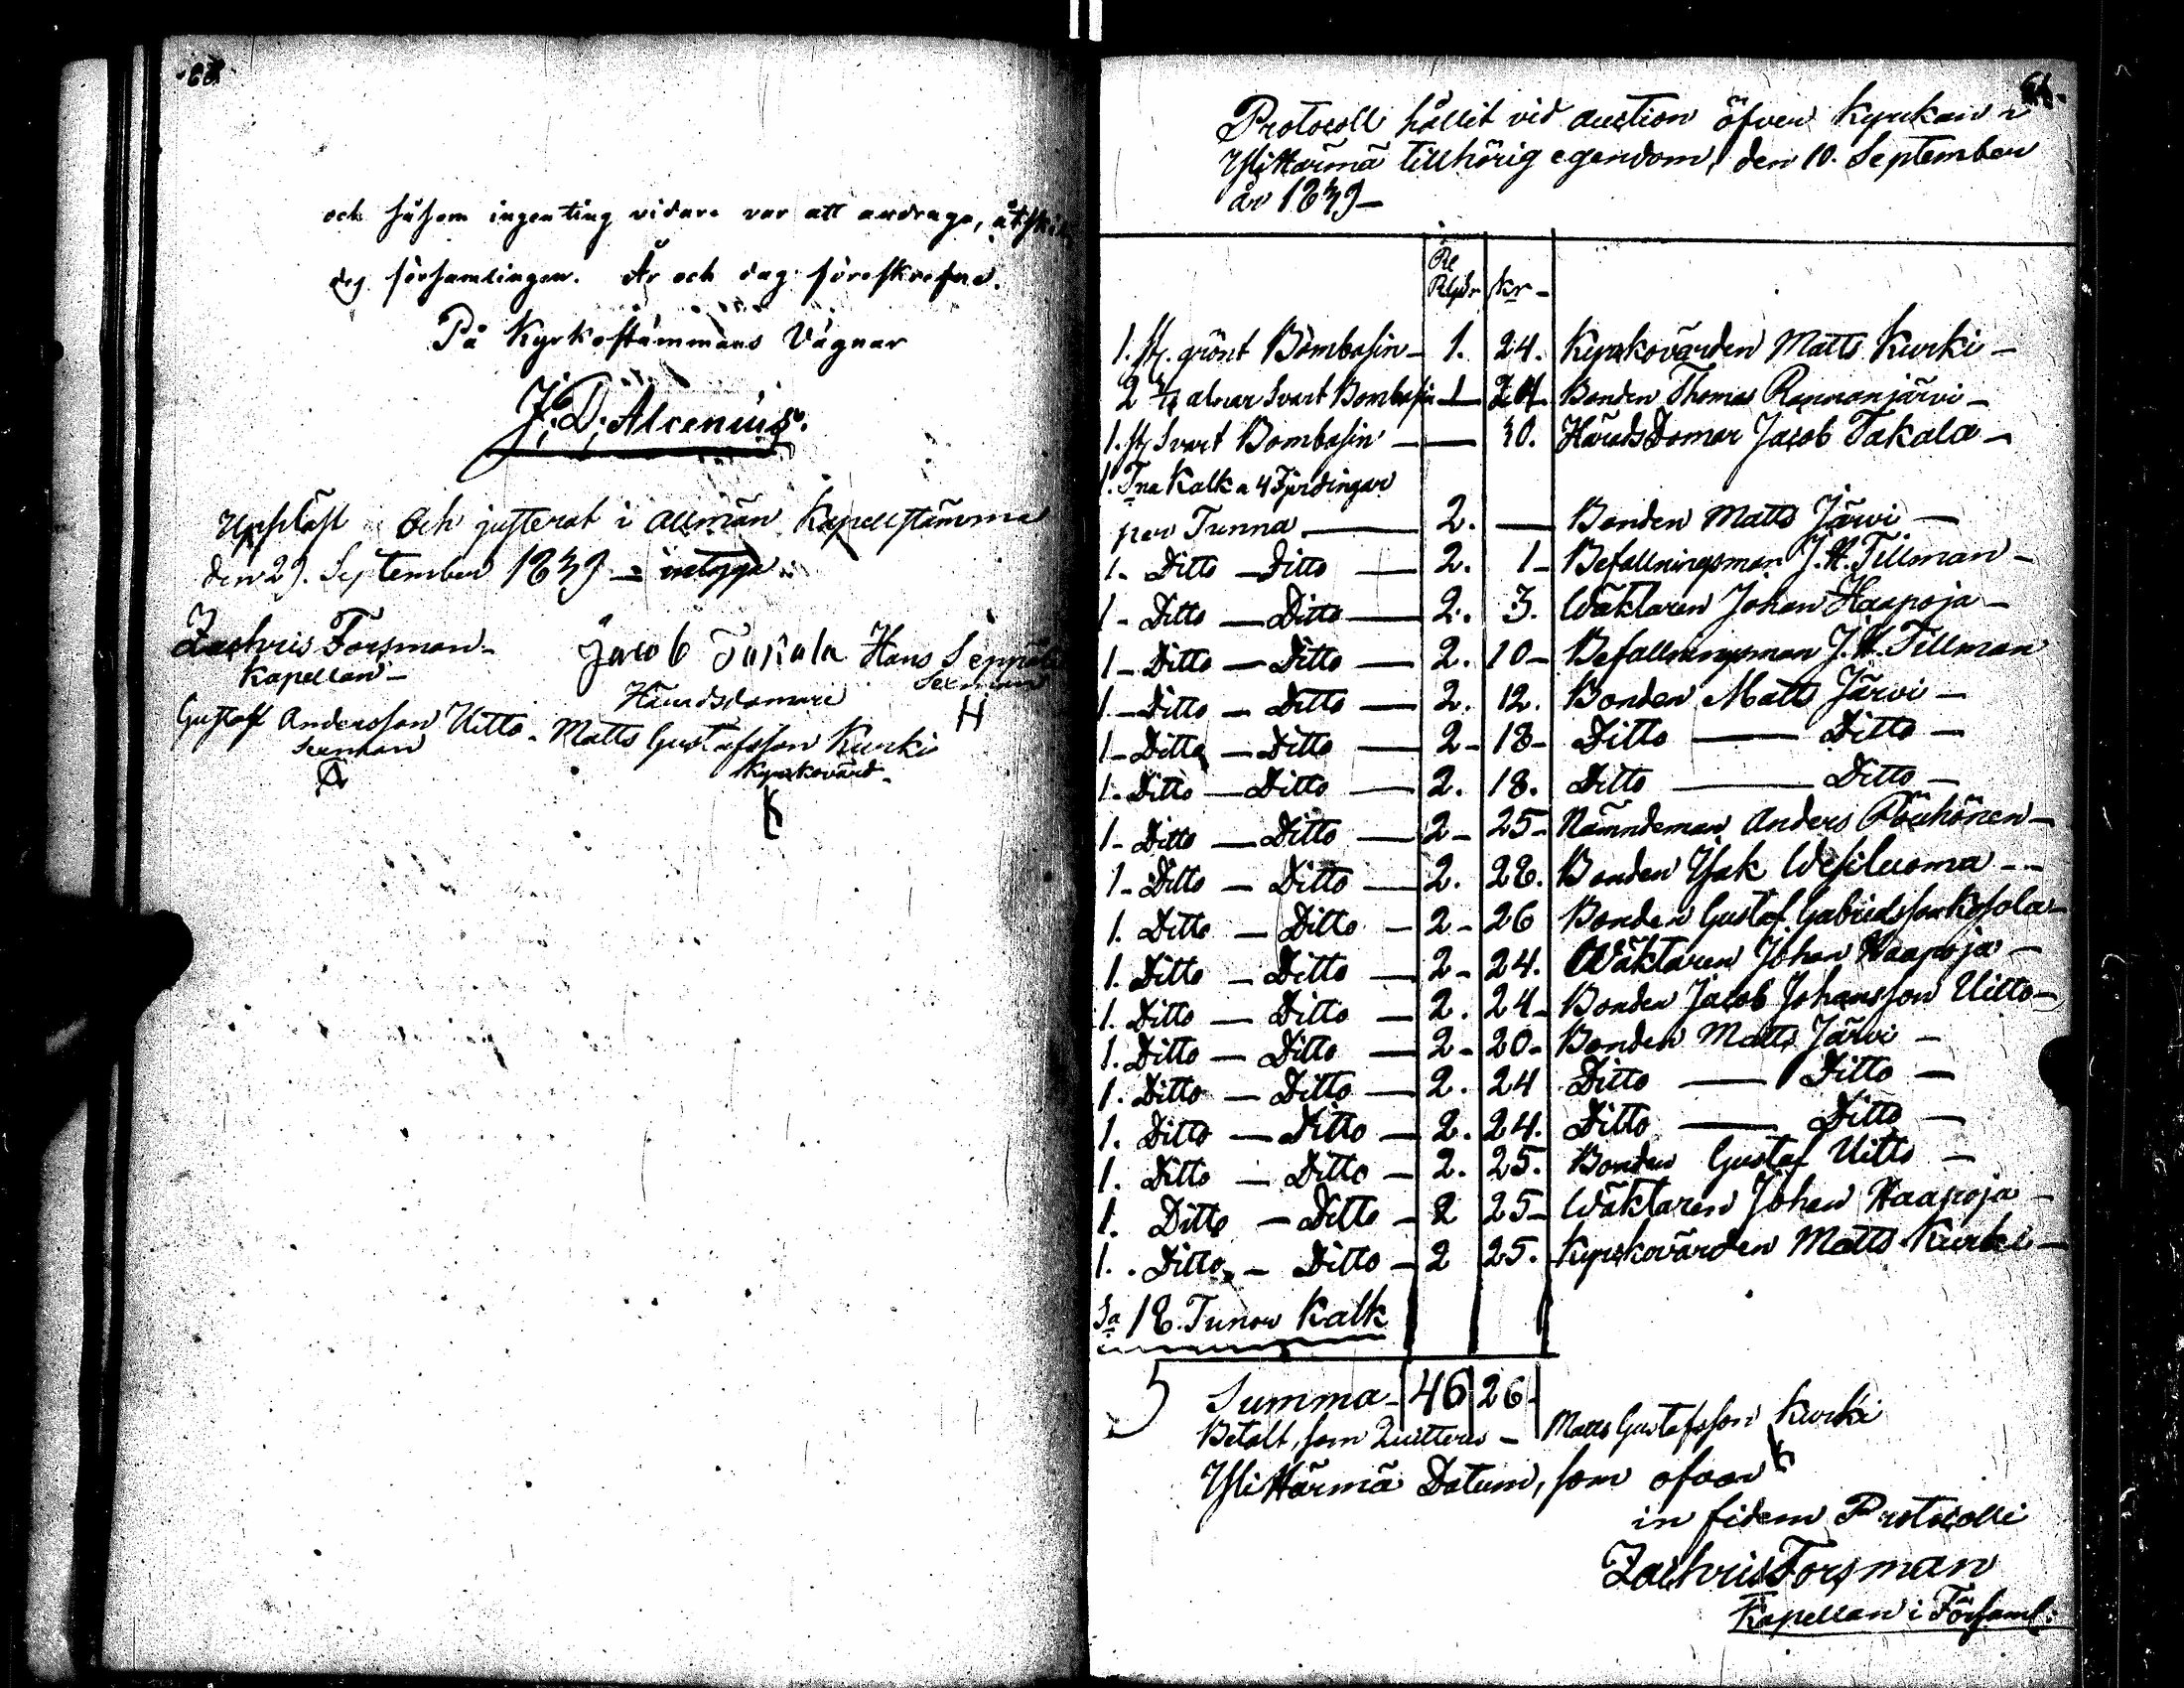 68.
och såsom ingenting vidare var att andraga, åtskil,
des församlingen. År och dag föreskrefne.
På Kyrkostämmans Vägnar
J: D: Alcenius.
Uppläst och justerat i allmän Kapellstämma
den 29. September 1839 – intyga
Zachris Forsman – Jacob Takala Hans Seppälä
Kapellan – Häradsdomare Sexman
Gustaf Andersson Uitto – Matts Gustafsson Kurki H
Sexman Kyrkovärd –
Protocoll hållit vid auction öfver Kyrkan i
Yliharmä tillhörig egendom, den 10. September
år 1839 –
Rubl Kr –
1. st. grönt Bombasin – 1. 24. Kyrkovärden Matts Kurki –
2 alnar Svart Bombasin – 1 24 Bonden Thomas Rapmanjärvi –
1. st Svart Bombasin – 30. HäradsDomar Jacob Takala –
1. Tna Kalk a 4 Fjerdingar
per Tunna – 2. – Bonden Matts Järvi –
1. Ditto – Ditto – 2. 1 – Befallningsman J. H. Tillman –
1 – Ditto – Ditto – 2. 3. Wäktaren Johan Haapoja –
1 – Ditto – Ditto – 2. 10 – Befallningsman J. H. Tillman
1 – Ditto – Ditto – 2. 12. Bonden Matts Järvi –
1 – Ditto – Ditto – 2 – 18 – Ditto – Ditto –
1. Ditto – Ditto – 2. 18. Ditto – Ditto –
1 – Ditto – Ditto – 2 – 25 – Nämndeman Anders Pöuhönen –
1 – Ditto – Ditto – 2. 28. Bonden Isak Wesiluoma –
1. Ditto – Ditto – 2 – 26 Bonden Gustaf Gabrielsson Kosola –
1. Ditto – Ditto – 2 – 24. Wäktaren Johan Haapoja –
1. Ditto – Ditto – 2. 24 – Bonden Jacob Johansson Uitto –
1. Ditto – Ditto – 2 – 20 – Bonden Matts Järvi –
1. Ditto – Ditto – 2. 24 Ditto – Ditto –
1. Ditto – Ditto – 2. 24. Ditto – Ditto –
1. Ditto – Ditto – 2. 25. Bonden Gustaf Uitto –
1. Ditto – Ditto – 2 25 – Wäktaren Johan Haapoja –
1. Ditto – Ditto – 2 25. Kyrkovärden Matts Kurki –
Sa 18. Tunor Kalk
Summa – 46 26 –
Betalt, som Quitteras – Matts Gustafsson Kurki
Yliharmä Datum, som ofvan
in fidem Protocolli
Zachris Forsman
Kapellan i Församl: